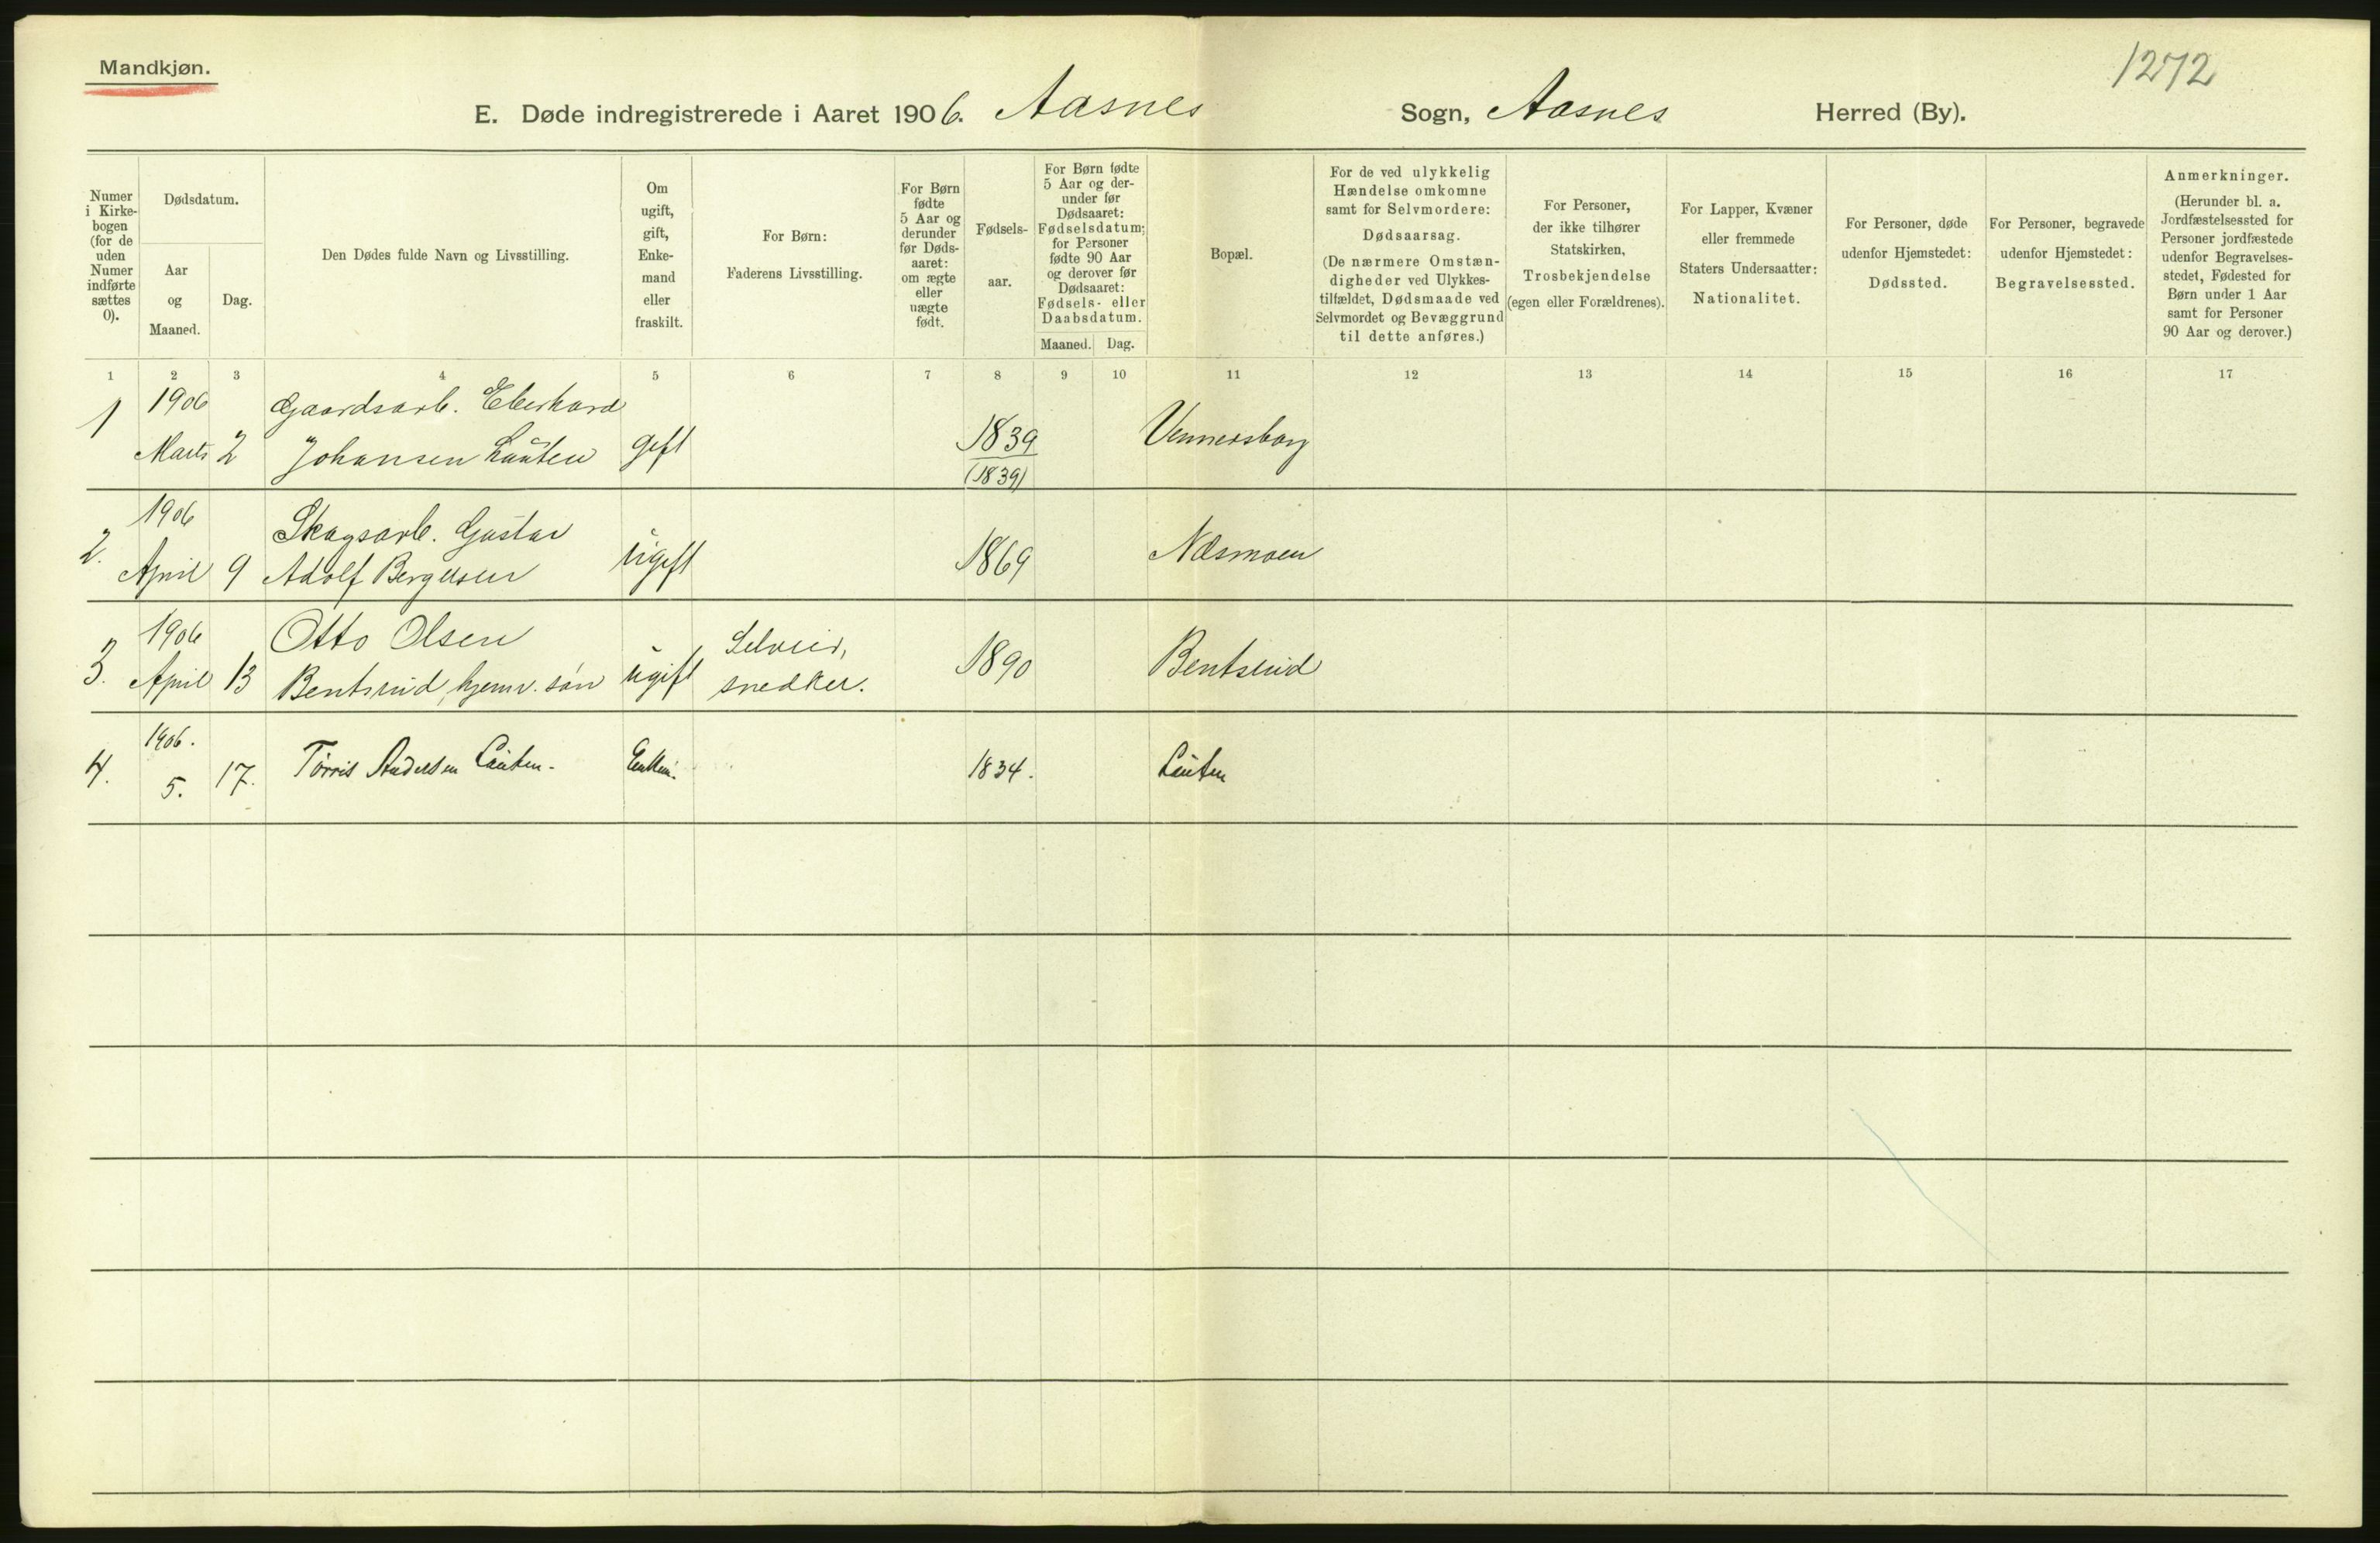 Mandkjøn.
1272
E. Døde indregistrerede i Aaret 1906. Aasnes Sogn, Aasnes Herred (By).
Numer
i Kirke-
bogen
(for de
uden
Numer
indførte
sættes
0).
Dødsdatum.
Aar
og
Maaned.
Dag.
Den Dødes fulde Navn og Livsstilling.
Om
ugift,
gift,
Enke-
mand
eller
fraskilt.
For Børn:
Faderens Livsstilling.
For Børn
fødte
5 Aar og
derunder
før Døds-
aaret:
om ægte
eller
uægte
født.
Fødsels-
aar.
For Børn fødte
5 Aar og der-
under før
Dødsaaret:
Fødselsdatum;
for Personer
fødte 90 Aar
og derover før
Dødsaaret:
Fødsels- eller
Daabsdatum.
Maaned. Dag.
Bopæl.
For de ved ulykkelig
Hændelse omkomne
samt for Selvmordere:
Dødsaarsag.
(De nærmere Omstæn-
digheder ved Ulykkes-
tilfældet, Dødsmaade ved
Selvmordet og Bevæggrund
til dette anføres.)
For Personer,
der ikke tilhører
Statskirken,
Trosbekjendelse
(egen eller Forældrenes).
For Lapper, Kvæner
eller fremmede
Staters Undersaatter:
Nationalitet.
For Personer, døde
udenfor Hjemstedet:
Dødssted.
For Personer, begravede
udenfor Hjemstedet:
Begravelsessted.
Anmerkninger.
(Herunder bl. a.
Jordfæstelsessted for
Personer jordfæstede
udenfor Begravelses-
stedet, Fødested for
Børn under 1 Aar
samt for Personer
90 Aar og derover.)
1 2 3 4 5 6 7 8 9 10 11 12 13 14 15 16 17
1 1906 Gaardsarb. Eberhard
Marts 2 Johansen Lauten gift 1839 Vennersborg
(1839)
1906 Skogsarb. Gustav
2. April 9 Adolf Bergersen ugift 1869 Næsmoen
1906 Otto Olsen Selveier,
3. April 13 Bentsrud, hjemv. søn ugift snedker. 1890 Bentsrud
1906.
4. 5. 17. Torris Andersen Lauten. Enkem. 1834. Lauten